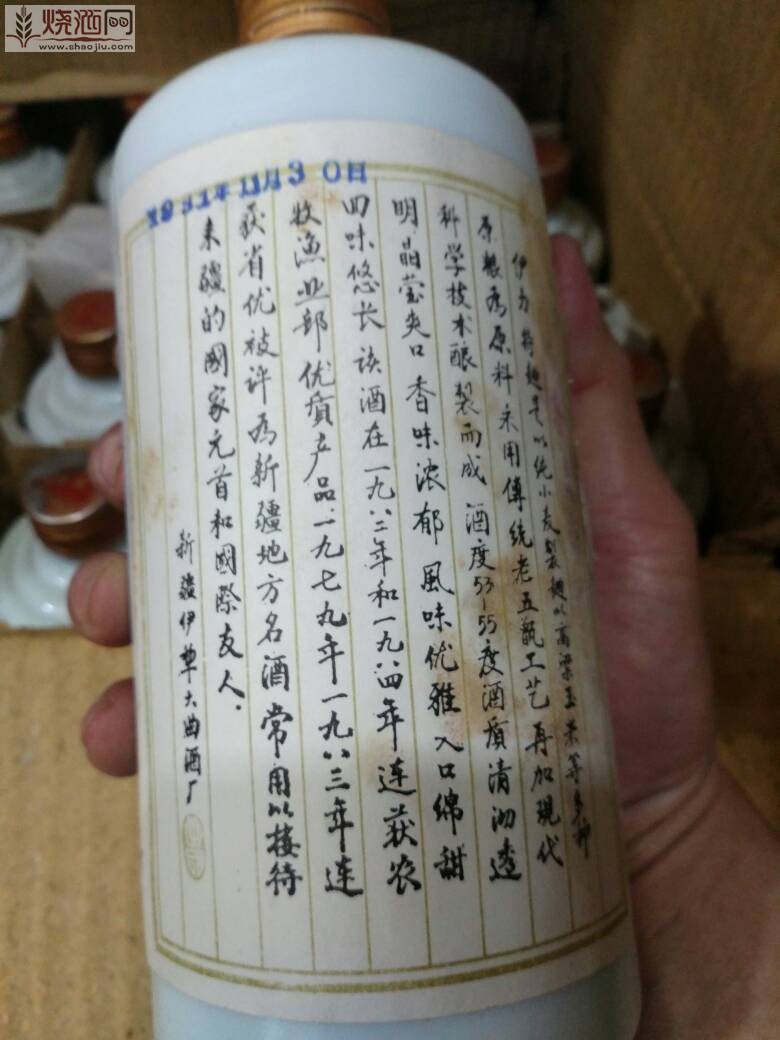 烧酒网
www.shaojiu.com
11月30日
伊力特麯是以纯小麦製麯以高粱玉米等多种
原粮為原料采用傳统老五甑工艺再加現代
科学技术酿製而成酒度53-55度酒質清沏透
明晶莹爽口香味浓郁風味优雅入口绵甜
回味悠长该酒在一九八二年和一九八四年連获农
牧渔业部优質产品.一九七九年一九八三年连
获省优被评為新疆地方名酒常用以接待
来疆的國家元首和國際友人.
新疆伊犂大曲酒厂